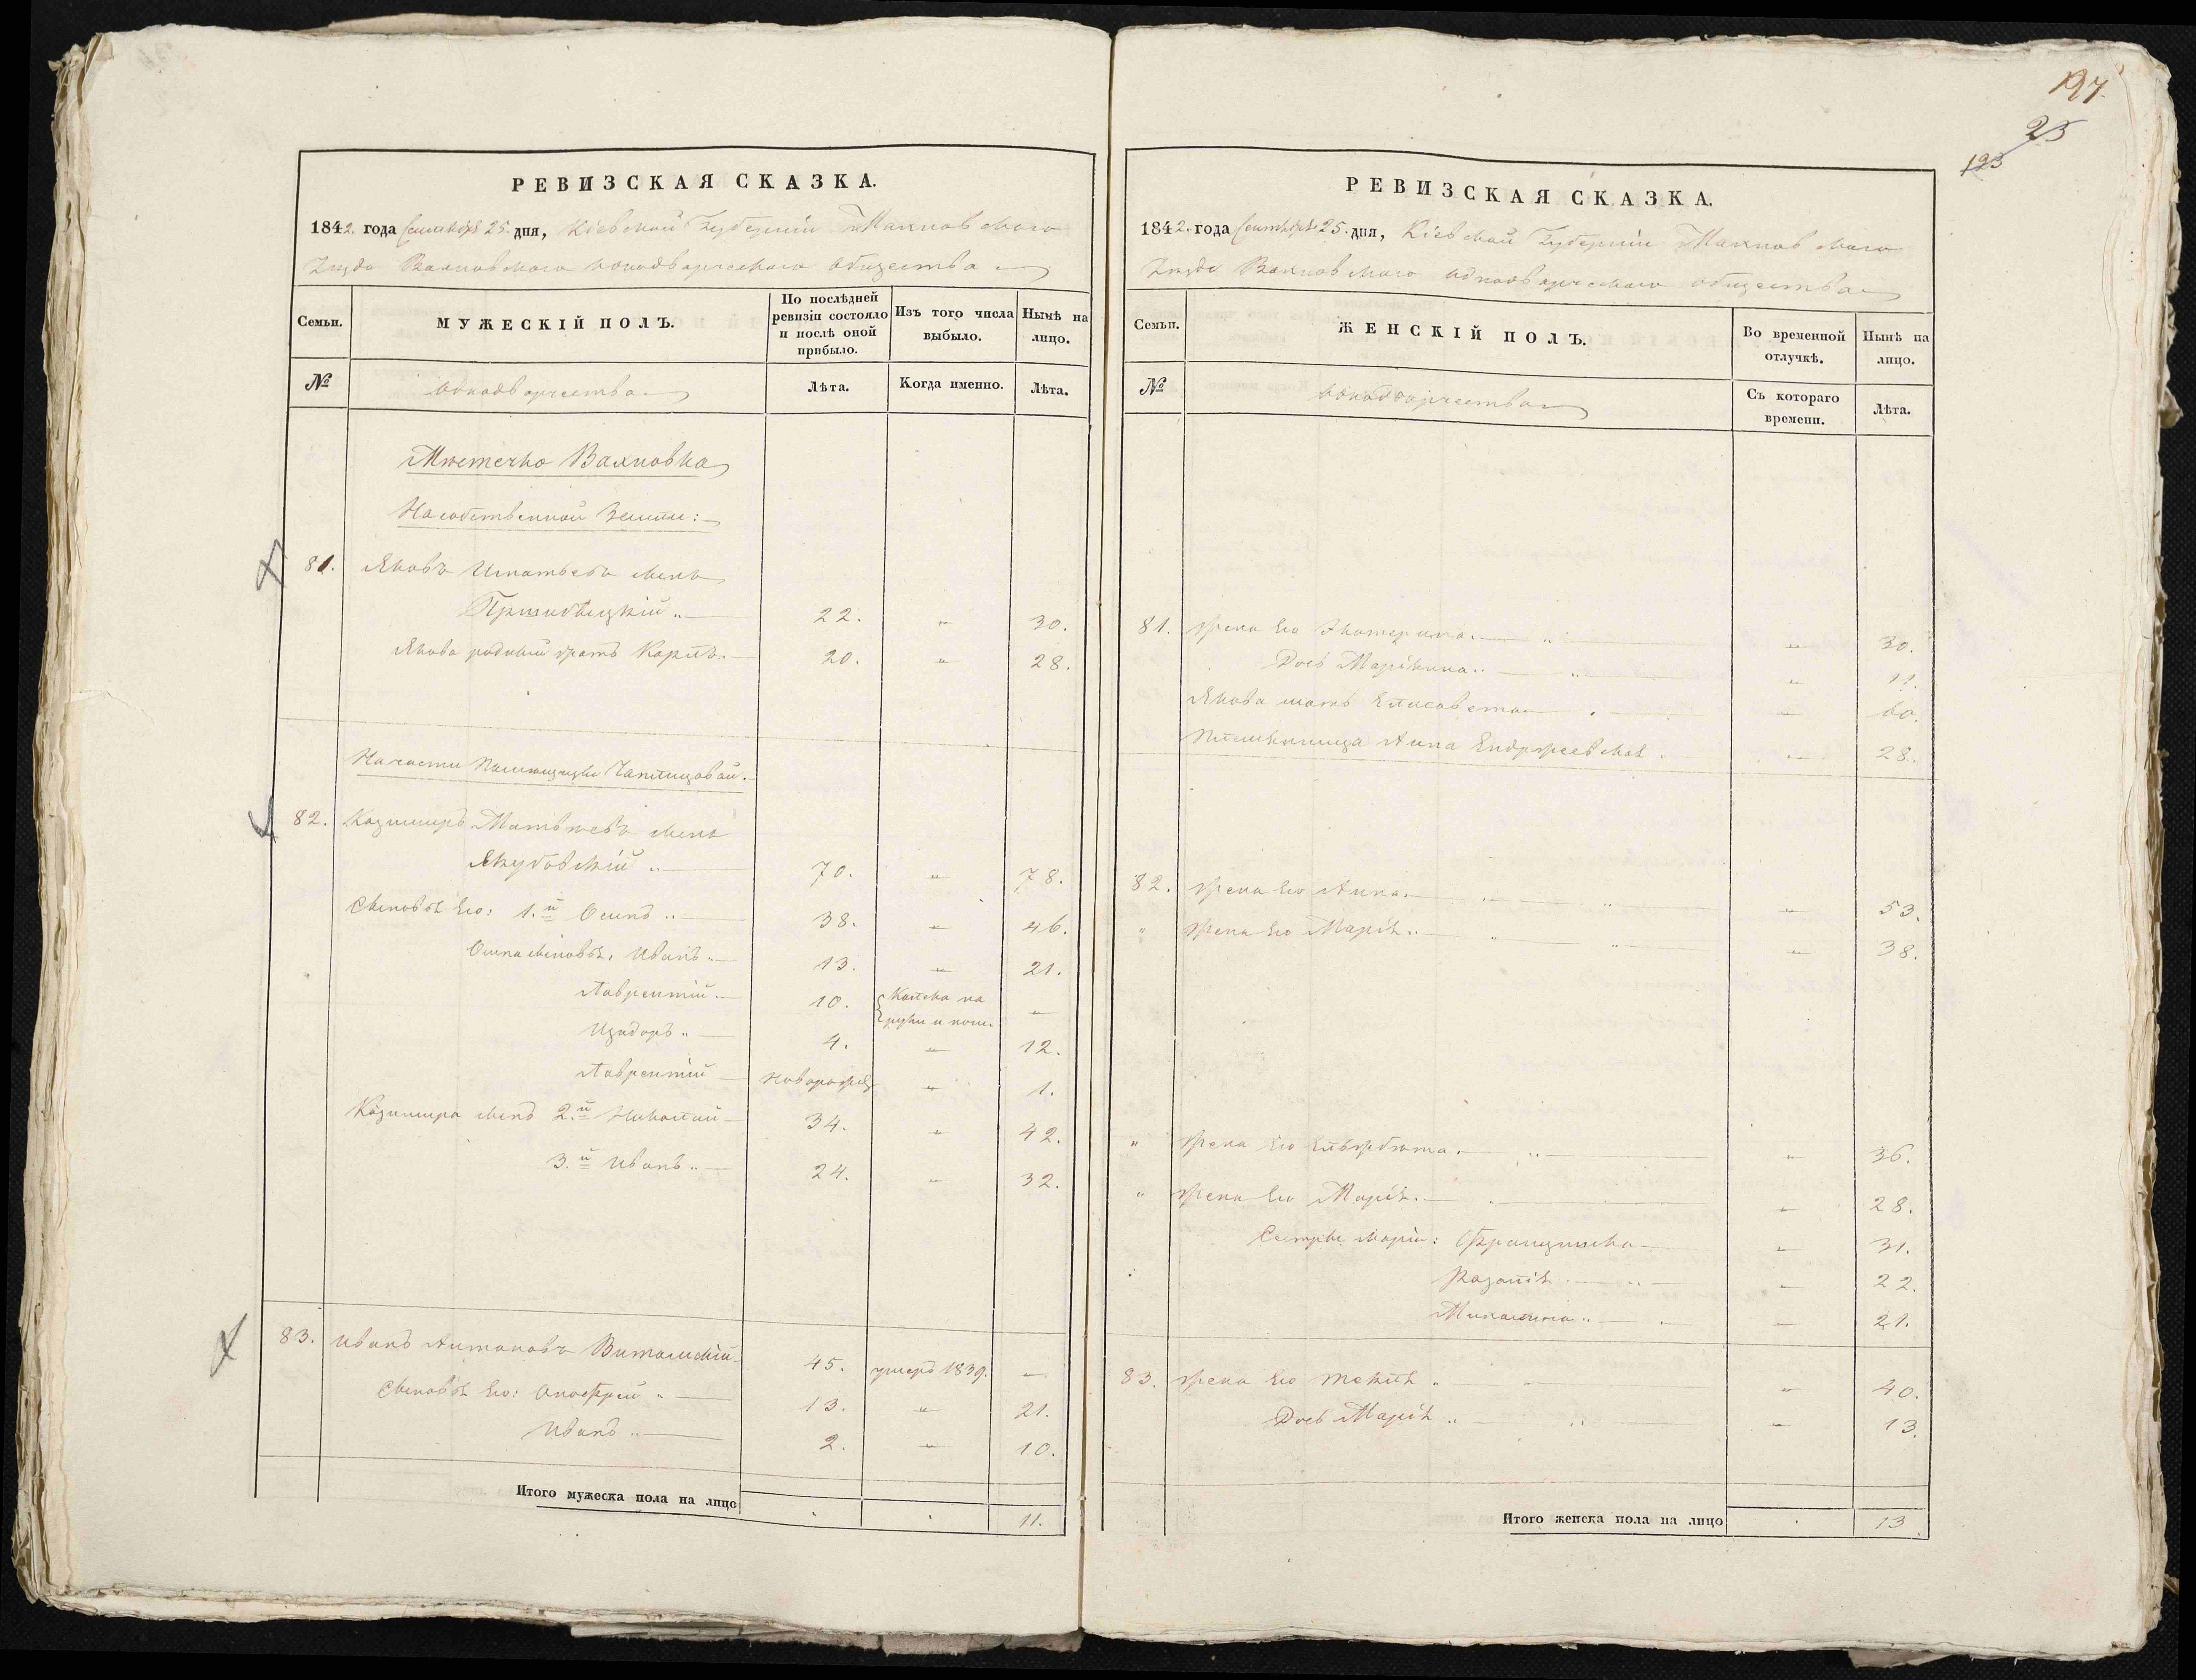 197.
25
193
РЕВИЗСКАЯ СКАЗКА.
1842. года Сентября 25. дня, Кіевской Губерніи Махновского
Уѣзда Вахновского Однодворческого Общества
Семьи.
МУЖЕСКІЙ ПОЛЪ.
По послѣдней ревизіи состояло и послѣ оной прибыло.
Изъ того числа выбыло.
Нынѣ на лицо.
№
Однодворчества
Лѣта.
Когда именно.
Лѣта.
Мѣстечко Вахновка
На собственной Земли:
81. Яковъ Игнатьевъ сынъ
22. „ 30.
Якова родный братъ Карпъ. 20. „ 28.
На части Помѣщицы
82. Казимиръ Матвѣевъ сынъ
Якубовскій „ 70. „ 78.
Сыновья Его: 1.й Осипъ „ 38. „ 46.
Осипа сыновья: Иванъ „ 13. „ 21.
Лаврентій „ 10. „
Изидоръ „ 4. „ 12.
Лаврентій новорожд „ 1.
Казимира сынъ 2.й Николай 34. „ 42.
3.й Иванъ „ 24. „ 32.
83. Иванъ Антоновъ 45. умеръ 1839. „
Сыновья Его: Онофрей „ 13. „ 21.
Иванъ „ 2. „ 10.
Итого мужеска пола на лицо 11.
РЕВИЗСКАЯ СКАЗКА.
1842. года Сентября 25. дня, Кіевской Губерніи Махновского
Уѣзда Вахновского Однодворческого Общества
Семьи.
ЖЕНСКІЙ ПОЛЪ.
Во временной отлучкѣ.
Нынѣ на лицо.
№
Однодворчества
Съ котораго времени.
Лѣта.
81. Жена Его Екатерина. „ „ 30.
Дочь Маріянна „ „ 11.
Якова мать Елисавета „ 60.
Племянница Анна Ендржеевская „ 28.
82. Жена Его Анна. „ 53.
„ Жена Его Марія „ „ 38.
„ Жена Его Ельжбѣта „ „ 36.
„ Жена Его Марія. „ 28.
Сестры Маріи: Францишка „ 31.
Розалія „ 22.
Михалина „ 21.
83. Жена Его Текля „ „ 40.
Дочь Марія „ „ 13.
Итого женска пола на лицо 13